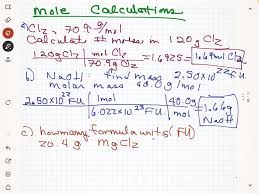 Mole Calculations
a) Cl2, 70.9 g/mol
Calculate # moles in 120g Cl2
120g Cl2 | 1mol Cl2 = 1.6925 = 1.69mol Cl2
70.9g Cl2
b) NaOH: find mass 2.50x10^22 FU.
molar mass 40.0g/mol
2.50x10^22 FU | 1mol | 40.0g = 1.66g NaOH
6.022x10^23 FU | mol
c) how many formula units (FU)
20.4 g MgCl2